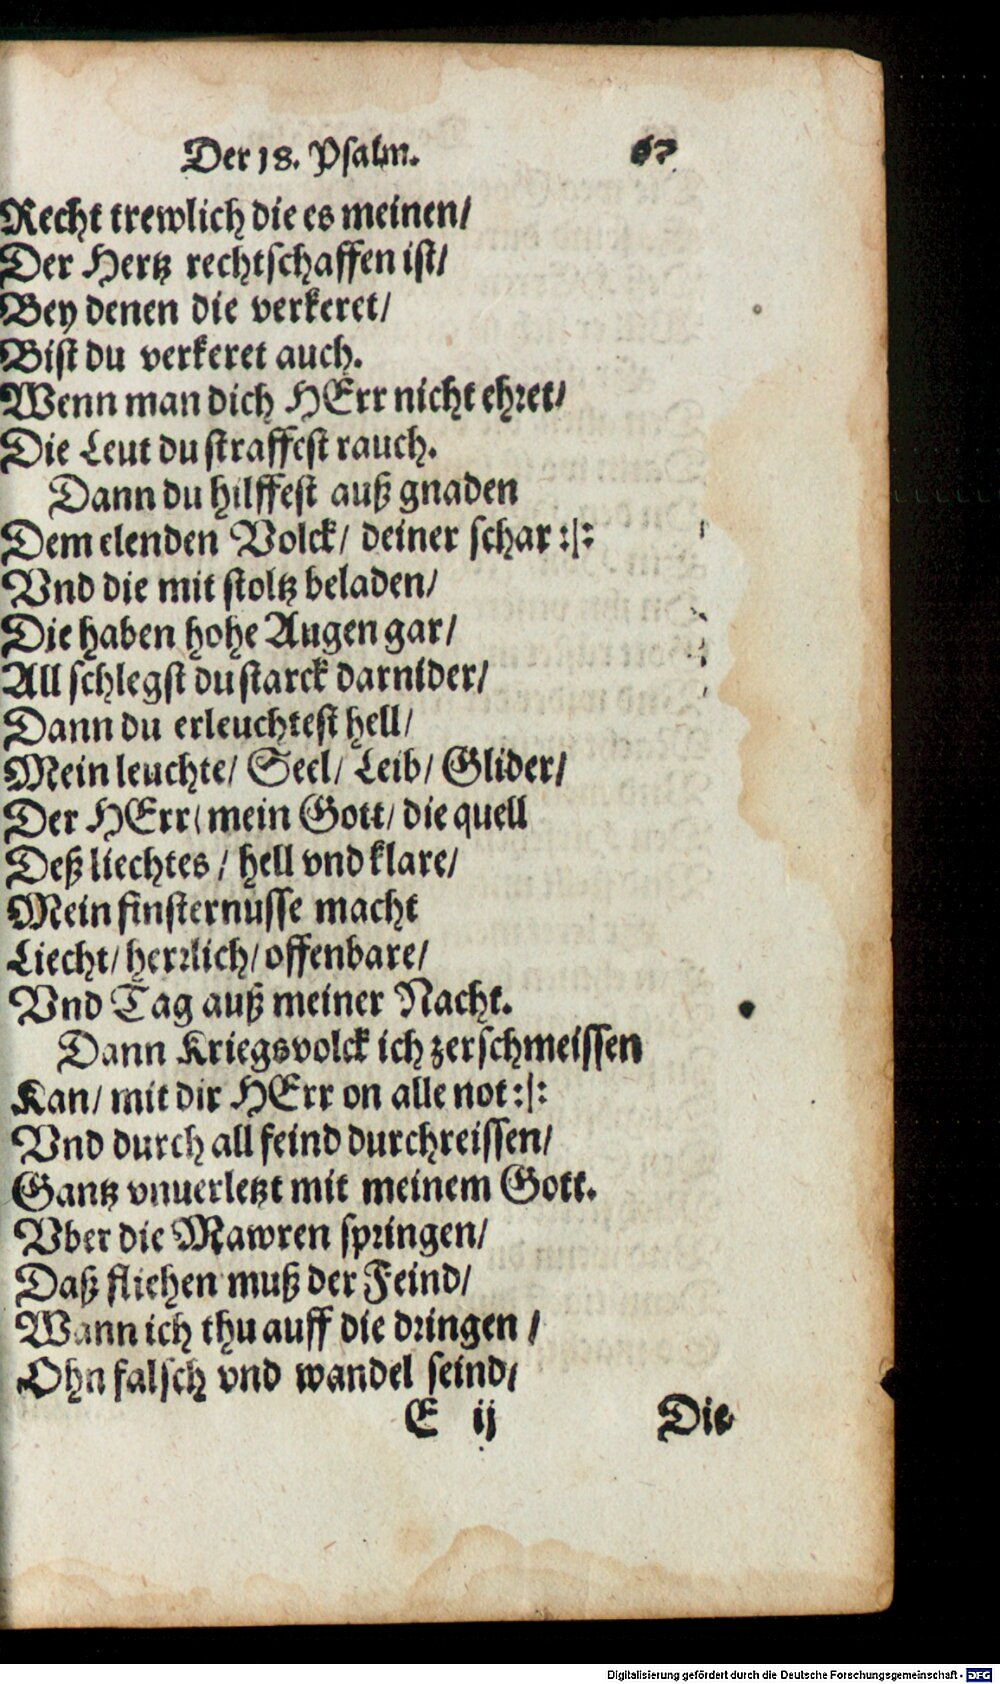 Der 18. Psalm. 67
Recht trewlich die es meinen/
Der Hertz rechtschaffen ist/
Bey denen die verkeret/
Bist du verkeret auch.
Wenn man dich HErr nicht ehret/
Die Leut du straffest rauch.
Dann du hilffest auß gnaden
Dem elenden Volck/ deiner schar :|:
Vnd die mit stoltz beladen/
Die haben hohe Augen gar/
All schlegst du starck darnider/
Dann du erleuchtest hell/
Mein leuchte/ Seel/ Leib/ Glider/
Der HErr/ mein Gott/ die quell
Deß liechtes / hell vnd klare/
Mein finsternusse macht
Liecht/ herrlich/ offenbare/
Vnd Tag auß meiner Nacht.
Dann Kriegsvolck ich zerschmeissen
Kan/ mit dir HErr on alle not :|:
Vnd durch all feind durchreissen/
Gantz vnuerletzt mit meinem Gott.
Vber die Mawren springen/
Daß fliehen muß der Feind/
Wann ich thu auff die dringen /
Ohn falsch vnd wandel seind/
E ij Die
Digitalisierung gefördert durch die Deutsche Forschungsgemeinschaft - DFG